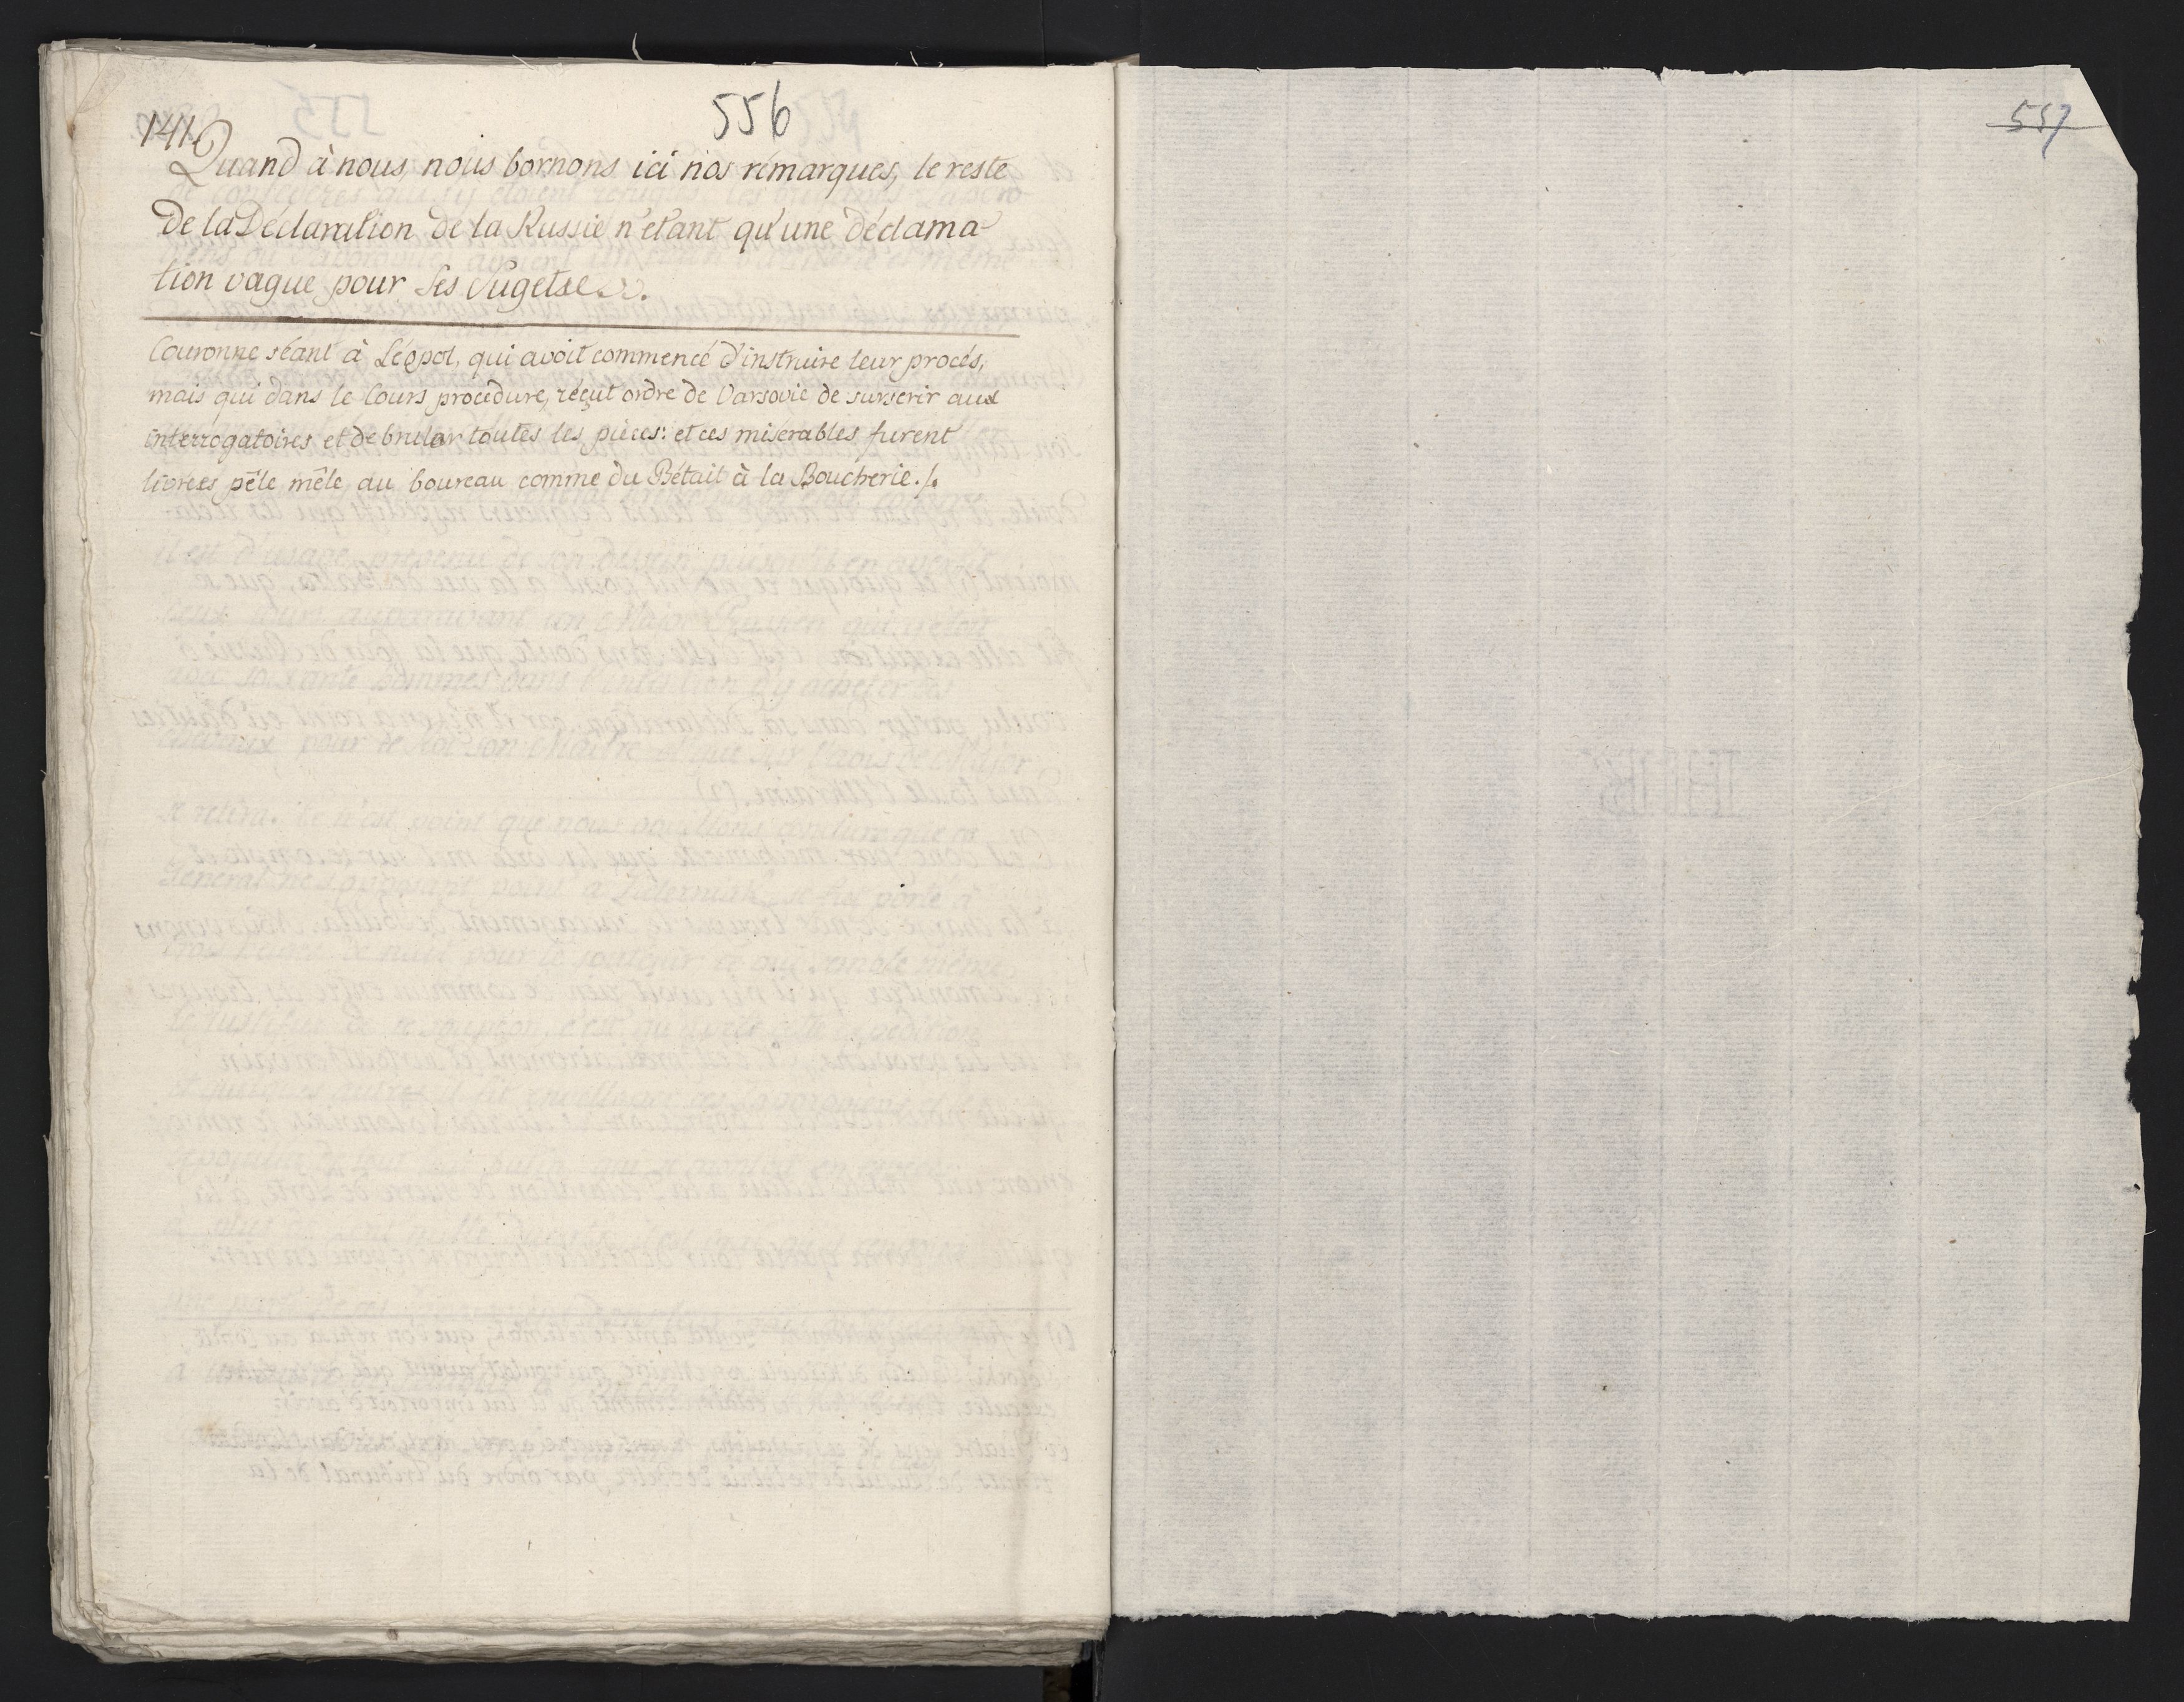 141.
556
Quand à nous, nous bornons ici nos rémarques, le reste
de la Déclaration de la Russie n'etant qu'une déclama-
tion vague pour ses Sugets
Couronne séant à Léopol, qui avoit commencé d'instruire leur procés,
mais qui dans le Cours procédure, réçut ordre de Varsovie de surserir aux
interrogatoires et de bruler toutes les pièces: et ces miserables furent
livrées pêle mêle au boureau comme du Bétail à la Boucherie./.
557